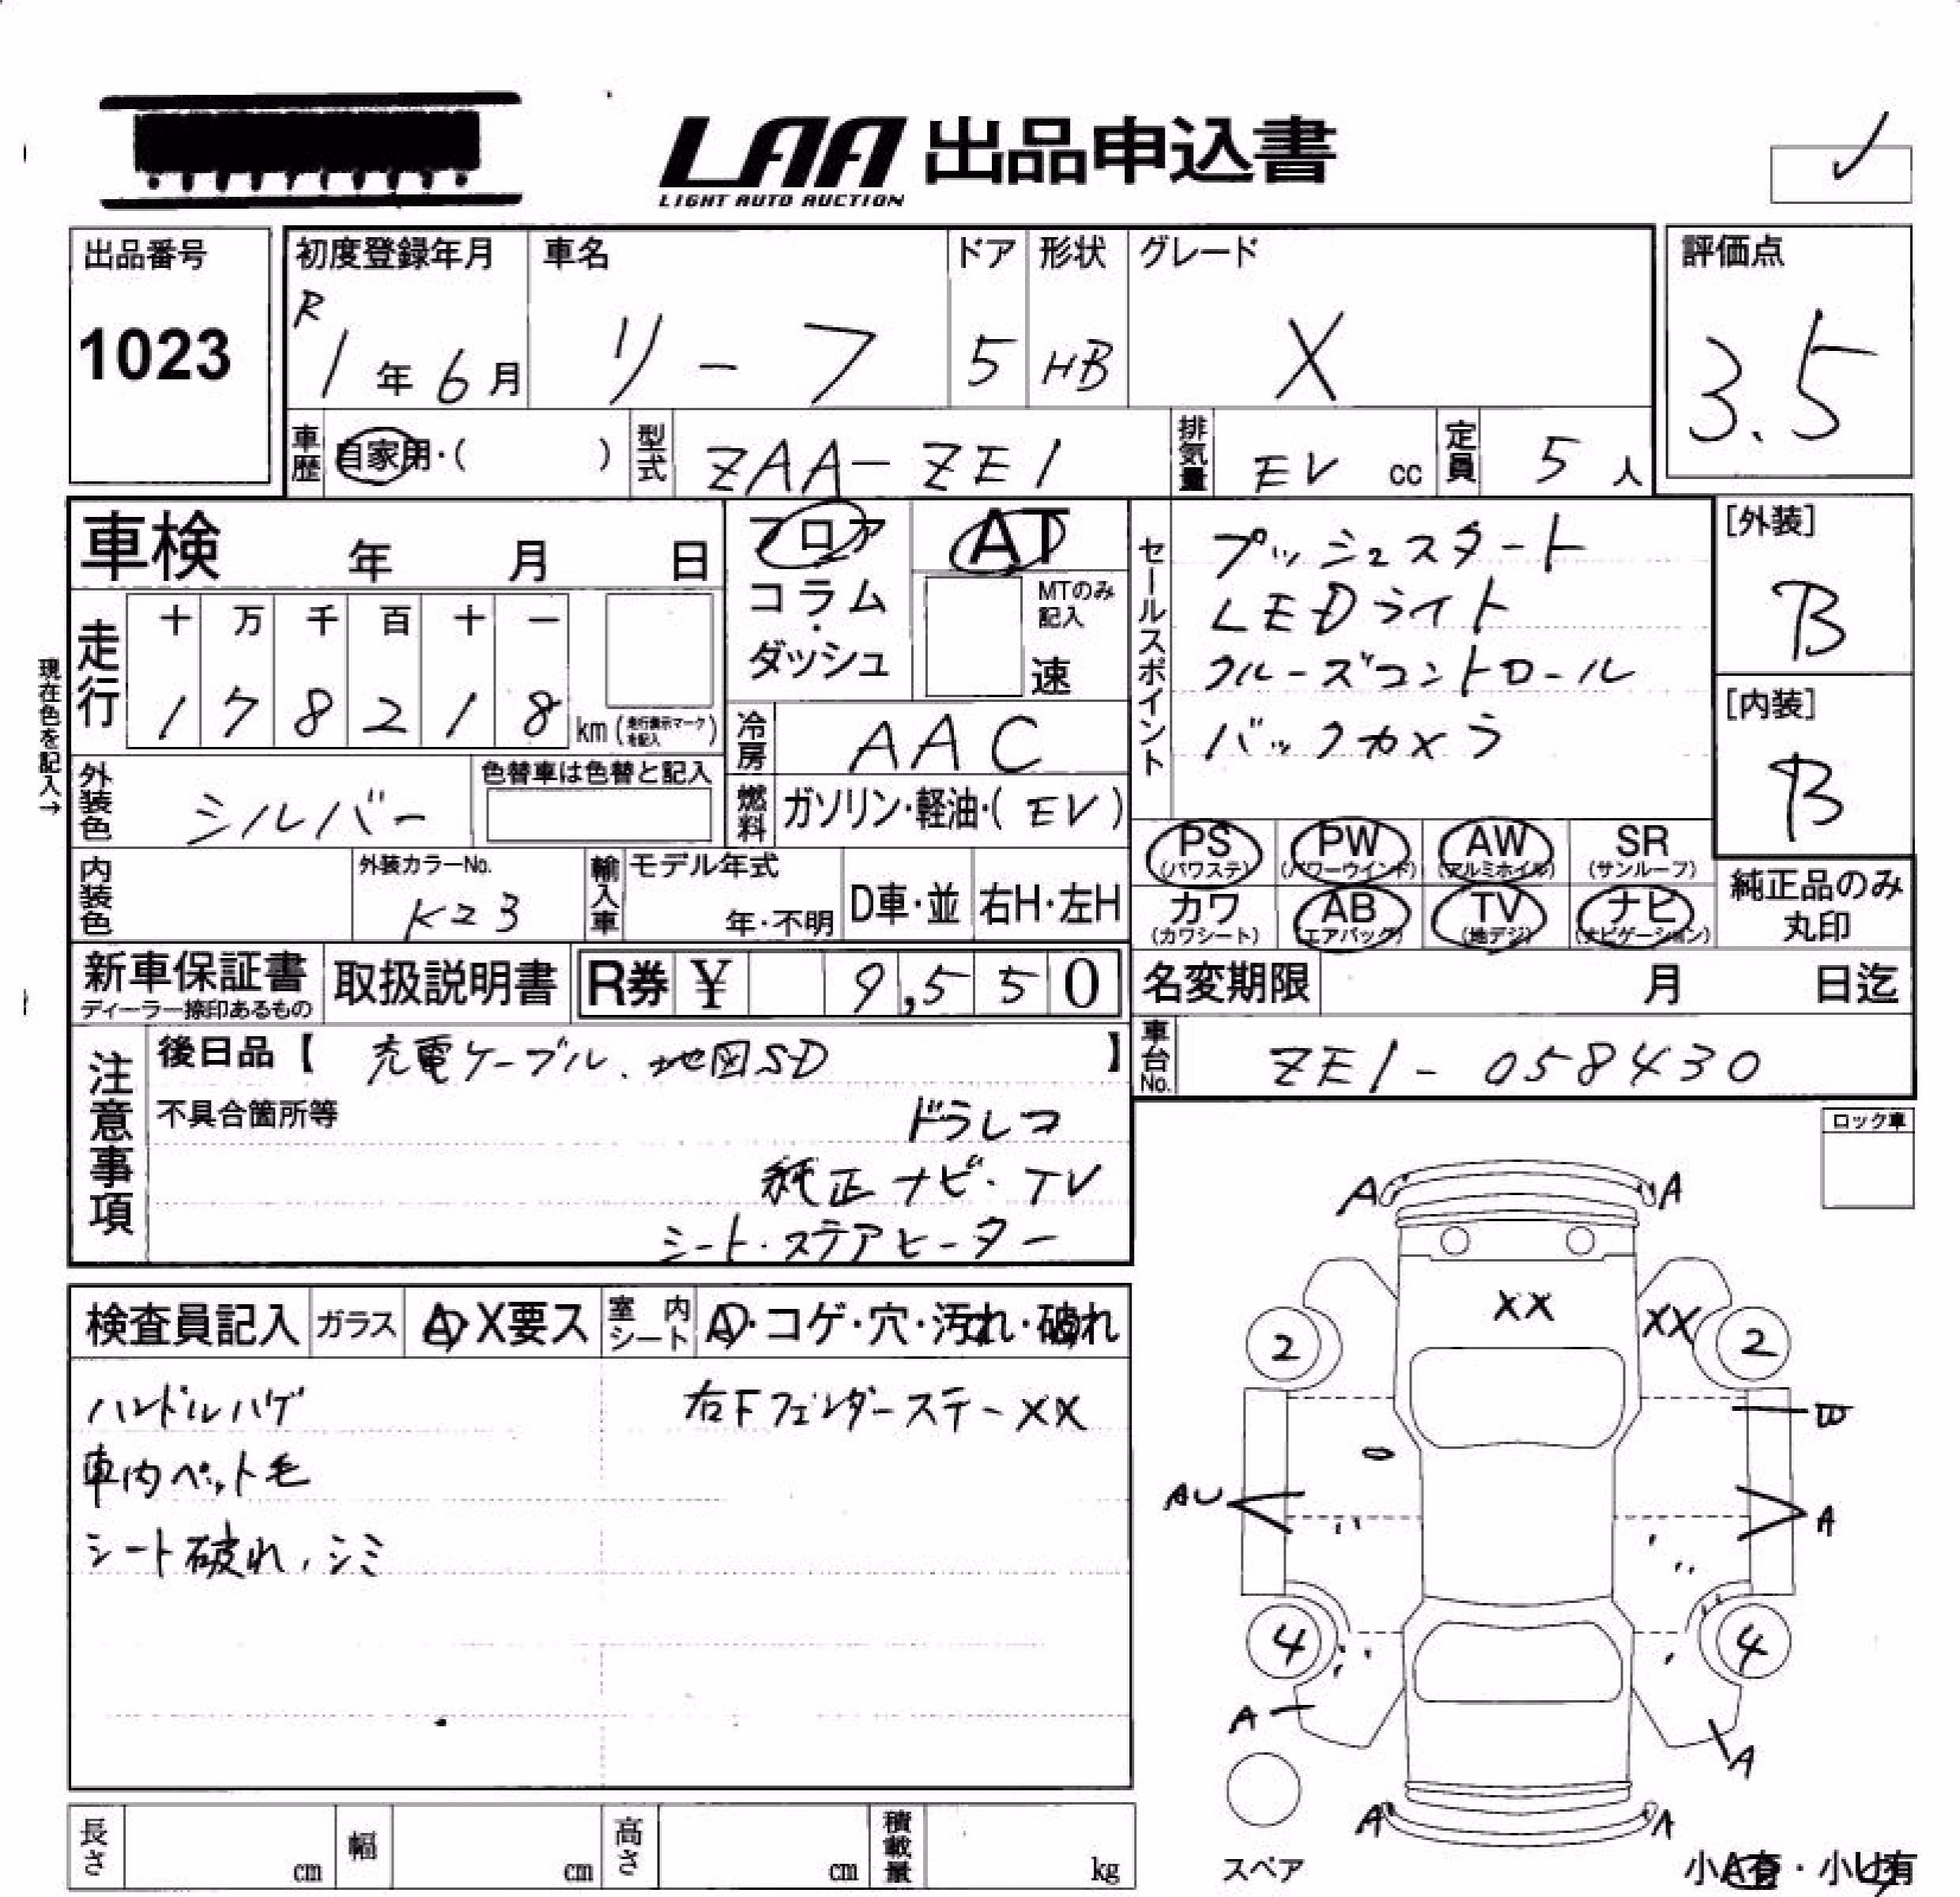 LAA 出品申込書
LIGHT AUTO AUCTION
出品番号
1023
初度登録年月
R1年6月
車名
リーフ
ドア
5
形状
HB
グレード
X
評価点
3.5
車歴
自家用・( )
型式
ZAA-ZE1
排気量
EV cc
定員
5人
車検 年 月 日
フロア
コラム
・
ダッシュ
AT
MTのみ
記入
速
セールスポイント
プッシュスタート
LEDライト
クルーズコントロール
バックカメラ
[外装]
B
[内装]
B
現在色を記入→
走行
十 万 千 百 十 一
1 7 8 2 1 8 km (走行表示マークを記入)
冷房
AAC
外装色
シルバー
色替車は色替と記入
燃料
ガソリン・軽油・( EV )
PS (パワステ)
PW (パワーウインド)
AW (アルミホイル)
SR (サンルーフ)
カワ (カワシート)
AB (エアバッグ)
TV (地デジ)
ナビ (ナビゲーション)
純正品のみ
丸印
内装色
外装カラーNo.
K23
輸入車
モデル年式
年・不明
D車・並
右H・左H
新車保証書
ディーラー捺印あるもの
取扱説明書
R券 ¥ 9,550
名変期限 月 日迄
車台No.
ZE1-058430
注意事項
後日品【 充電ケーブル、地図SD 】
不具合箇所等
ドラレコ
純正ナビ・TV
シート・ステアヒーター
ロック車
検査員記入
ガラス
A・X要ス
室内シート
A・コゲ・穴・汚れ・破れ
ハンドルハゲ
右Fフェンダーステー XX
車内ペット毛
シート破れ、シミ
A A
XX XX
2 2
AU A
4 4
A A
A A
スペア
小A有・小U有
長さ cm
幅 cm
高さ cm
積載量 kg